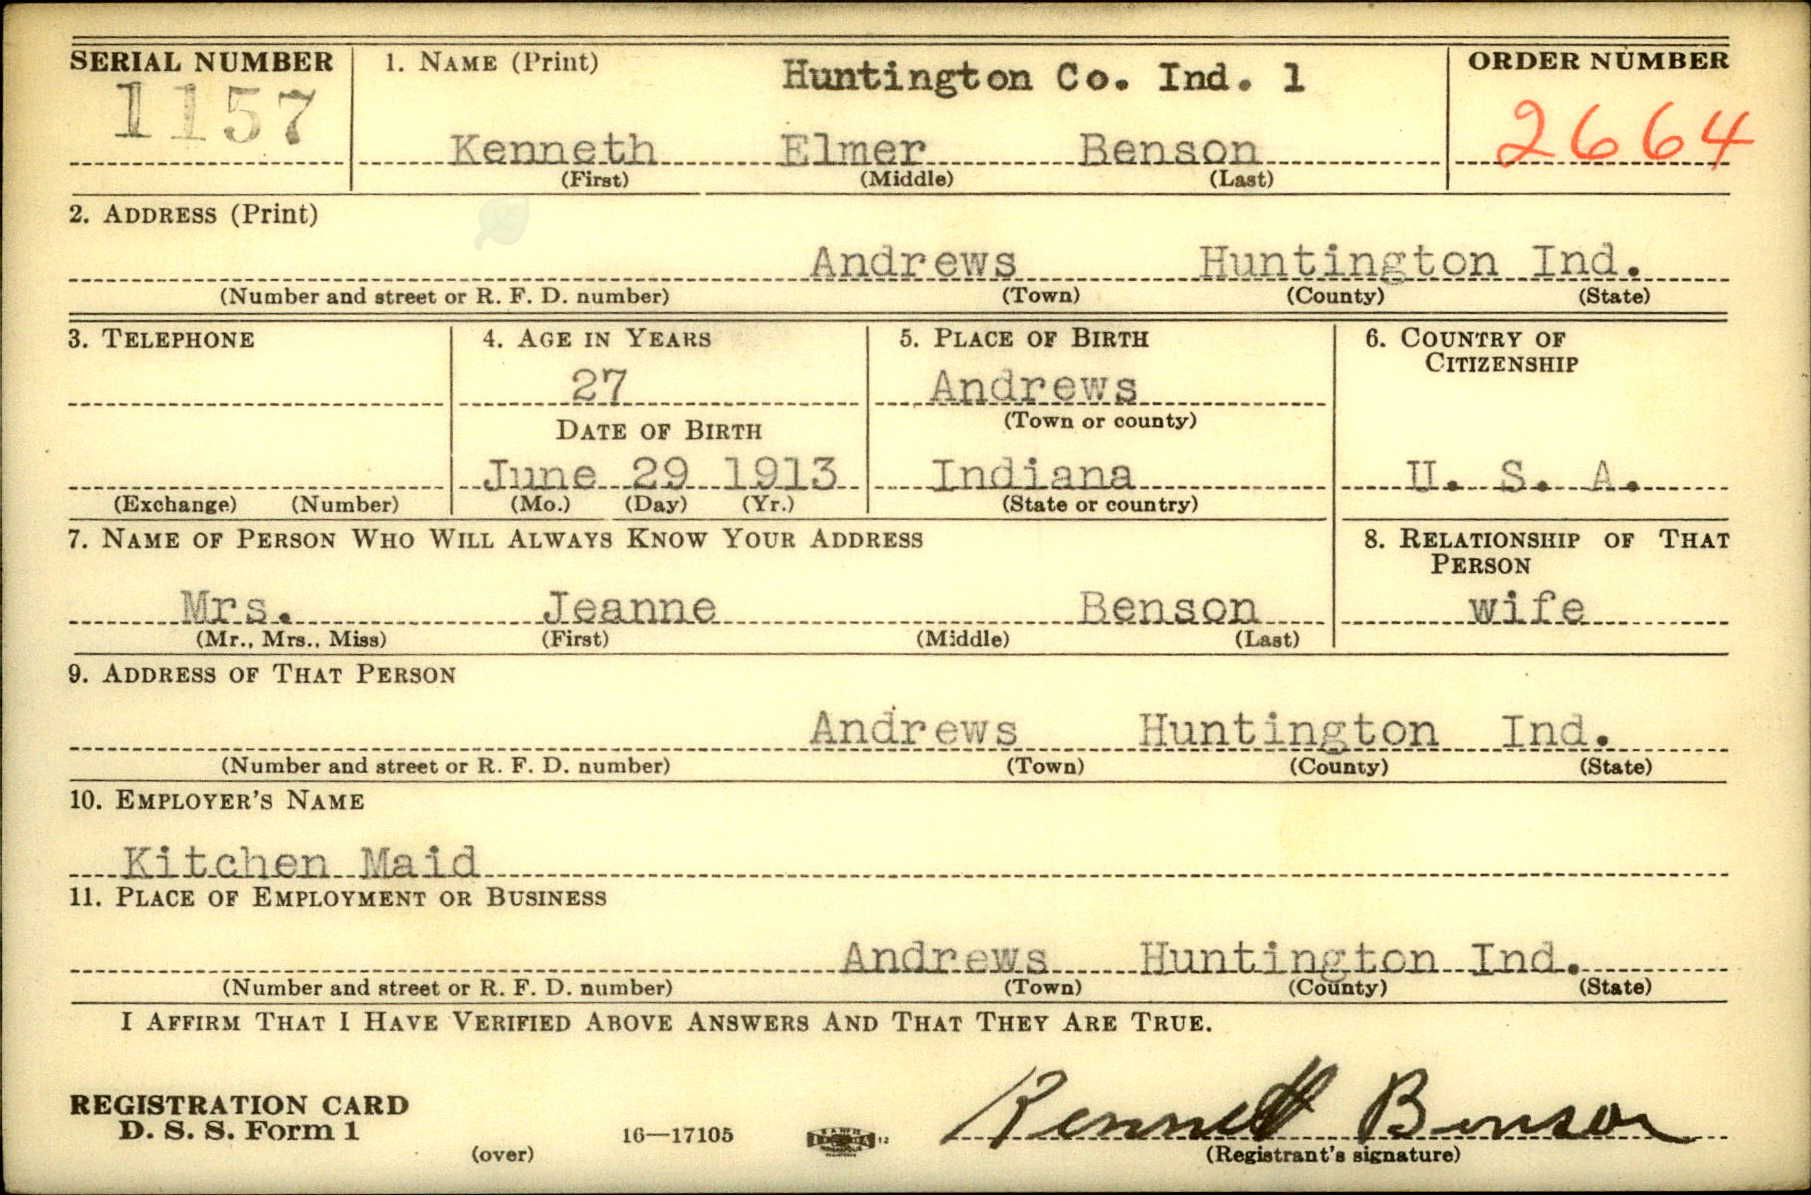 SERIAL NUMBER
1157
1. NAME (Print)
Huntington Co. Ind. 1
ORDER NUMBER
2664
Kenneth Elmer Benson
(First) (Middle) (Last)
2. ADDRESS (Print)
Andrews Huntington Ind.
(Number and street or R. F. D. number) (Town) (County) (State)
3. TELEPHONE
(Exchange) (Number)
4. AGE IN YEARS
27
DATE OF BIRTH
June 29 1913
(Mo.) (Day) (Yr.)
5. PLACE OF BIRTH
Andrews
(Town or county)
Indiana
(State or country)
6. COUNTRY OF
CITIZENSHIP
U. S. A.
7. NAME OF PERSON WHO WILL ALWAYS KNOW YOUR ADDRESS
Mrs. Jeanne Benson
(Mr., Mrs., Miss) (First) (Middle) (Last)
8. RELATIONSHIP OF THAT
PERSON
wife
9. ADDRESS OF THAT PERSON
Andrews Huntington Ind.
(Number and street or R. F. D. number) (Town) (County) (State)
10. EMPLOYER'S NAME
Kitchen Maid
11. PLACE OF EMPLOYMENT OR BUSINESS
Andrews Huntington Ind.
(Number and street or R. F. D. number) (Town) (County) (State)
I AFFIRM THAT I HAVE VERIFIED ABOVE ANSWERS AND THAT THEY ARE TRUE.
REGISTRATION CARD
D. S. S. Form 1
(over)
16—17105
12
Kenneth Benson
(Registrant's signature)